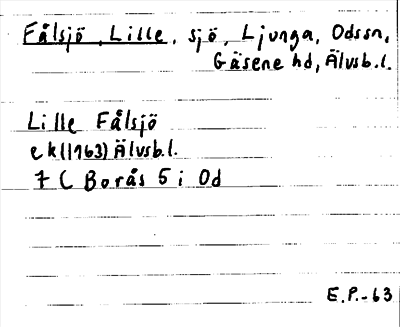 Fålsjö, Lille, sjö, Ljunga, Odssn,
Gäsene hd, Älvsb.l.
Lille Fålsjö
ek (1963) Älvsb.l.
7 C Borås 5 i Od
E.P.-63